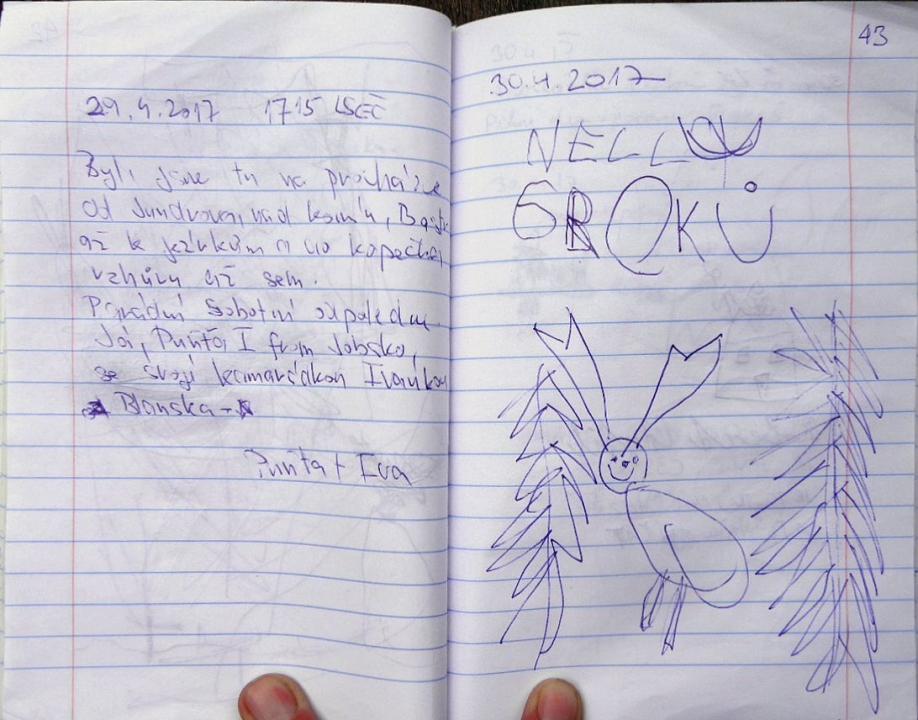 29.4.2017 17¹⁵ LSEČ
Byli jsme tu na procházce
od Jundrova, nad
až k jezírkům a do kopečka
vzhůru až sem.
Parádní sobotní odpoledne
Já, Punťa I from Jobsko,
se svojí kamarádkou Ivankou
Blanska
Punťa + Iva
43
30.4.2017
NELLY
6 ROKŮ